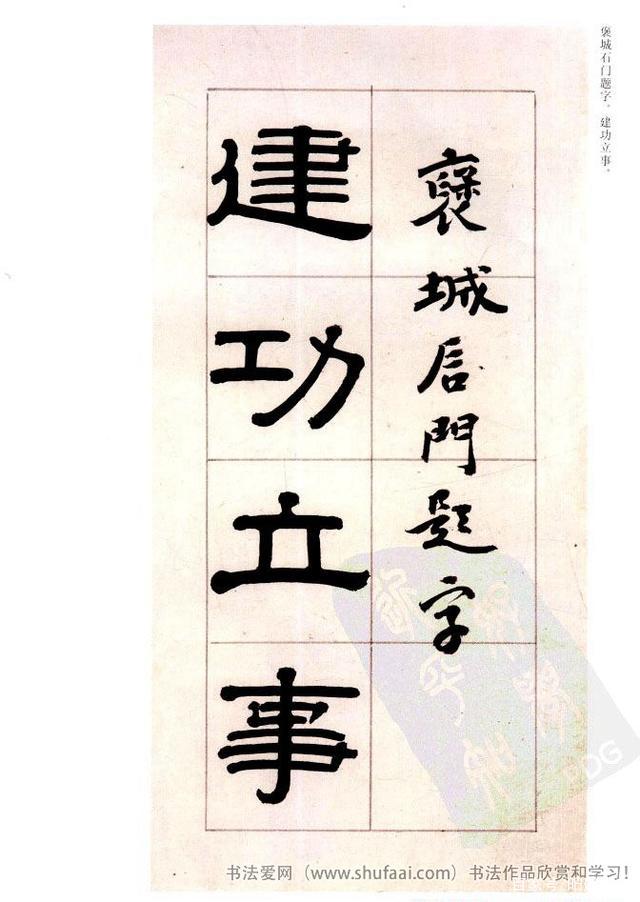 褒城石门题字。建功立事。
褒城石門题字
建功立事
书法爱网（www.shufaai.com）书法作品欣赏和学习！
PDG